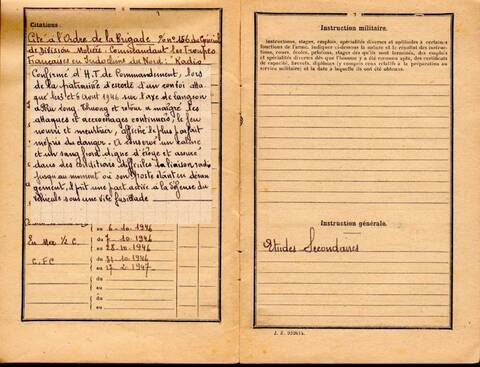 Citations :
Cité à l'Ordre de la Brigade N° 156 du Général
de Division Commandant les Troupes
Françaises en Indochine du Nord : "Radio
Confirmé d'H.T. de Commandement, lors
de la d'escorte d'un convoi
que les 5 et 6 Aout 1946 sur l'axe de Langson
à Phu Lang Thuong et retour a malgré les
attaques et accrochages continuels, le feu
nourri et meurtrier, affiché le plus parfait
mépris du danger. A conservé un calme
et un sang froid digne d'éloge et assuré
dans des conditions difficiles la liaison radio
jusqu'au moment où son poste étant en déran
gement, il prit une part active à la défense du
véhicule sous une vive fusillade
au 6-10-1946
En Mer ½ C. du 7-10-1946
au 28-10-1946
C.F.C du 31-10-1946
au 17-2-1947
du
au
du
au
du
au
Instruction militaire.
Instructions, stages, emplois, spécialités diverses et aptitudes à certaines
fonctions de l'arme. Indiquer ci-dessous la nature et le résultat des instruc-
tions, cours, écoles, pelotons, stages dès qu'ils sont terminés, des emplois
et spécialités diverses dès que l'homme y a été reconnu apte, des certificats
de capacité, brevets, diplômes (y compris ceux relatifs à la préparation au
service militaire) et la date à laquelle ils ont été obtenus.
Instruction générale.
Etudes Secondaires